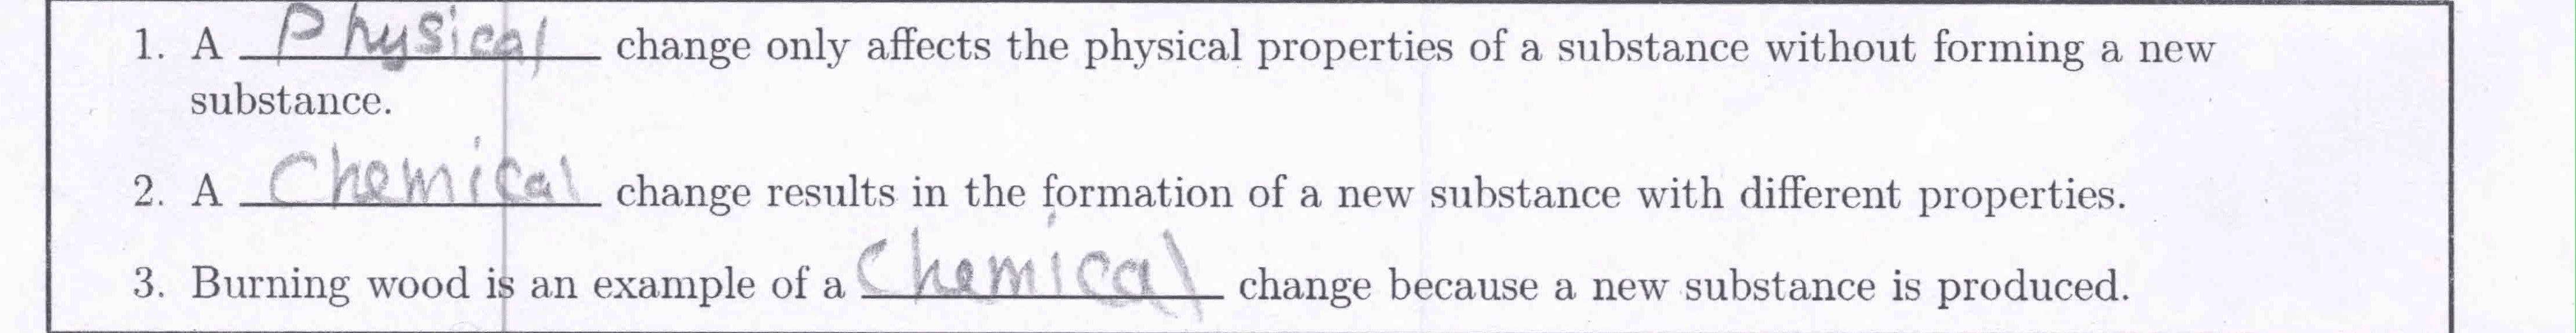 1. A Physical change only affects the physical properties of a substance without forming a new
substance.
2. A Chemical change results in the formation of a new substance with different properties.
3. Burning wood is an example of a Chemical change because a new substance is produced.